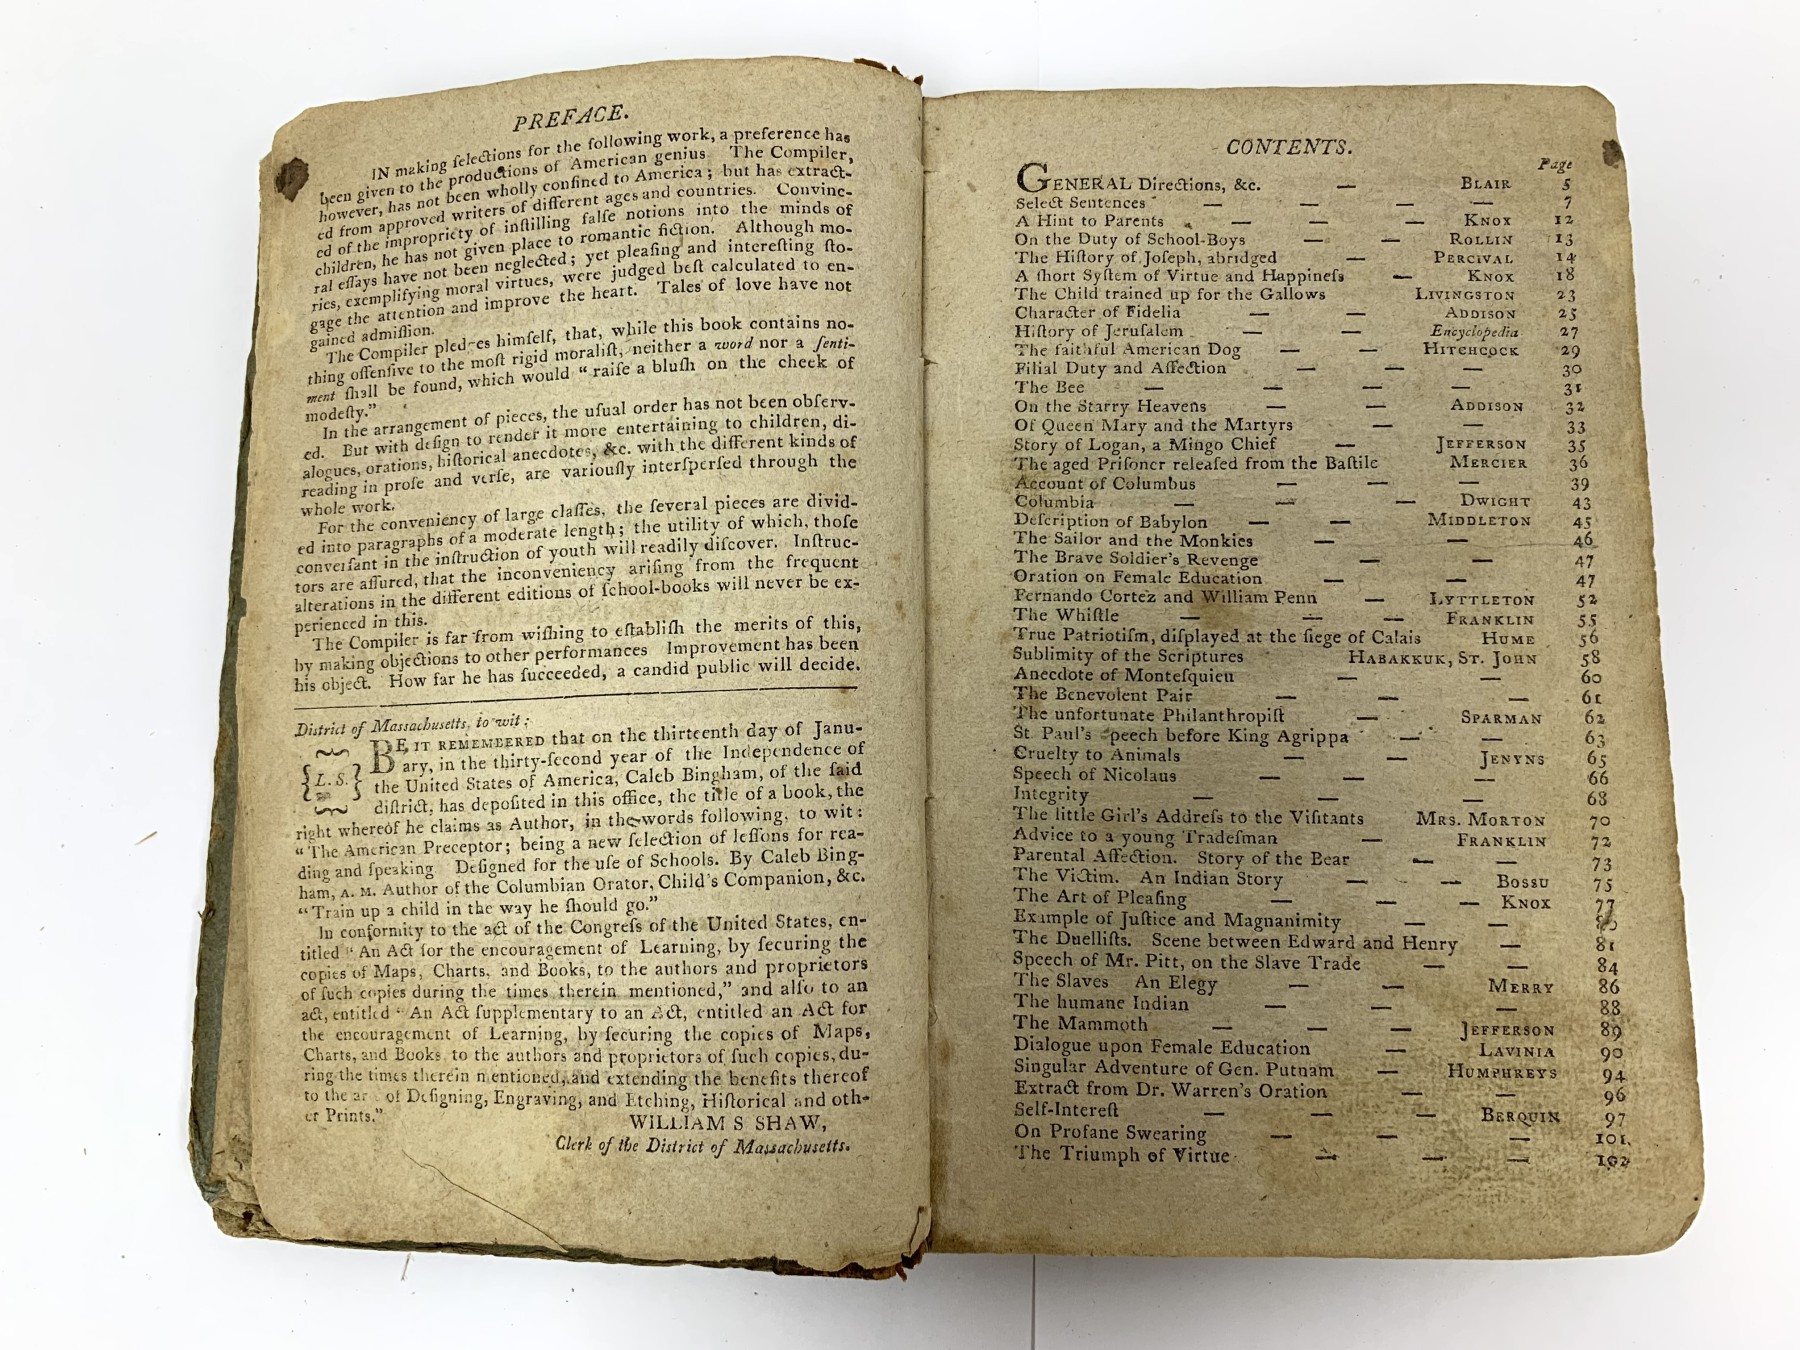 PREFACE.
IN making ſelections for the following work, a preference has
been given to the productions of American genius The Compiler,
however, has not been wholly confined to America; but has extract-
ed from approved writers of different ages and countries. Convinc-
ed of the impropriety of inſtilling falſe notions into the minds of
children, he has not given place to romantic fiction. Although mo-
ral eſſays have not been neglected; yet pleaſing and intereſting ſto-
ries, exemplifying moral virtues, were judged beſt calculated to en-
gage the attention and improve the heart. Tales of love have not
gained admiſſion.
The Compiler pled es himſelf, that, while this book contains no-
thing offenſive to the moſt rigid moraliſt, neither a word nor a ſenti-
ment ſhall be found, which would "raiſe a bluſh on the cheek of
modeſty."
In the arrangement of pieces, the uſual order has not been obſerv-
ed. But with deſign to render it more entertaining to children, di-
alogues, orations, hiſtorical anecdotes, &c. with the different kinds of
reading in proſe and verſe, are variouſly interſperſed through the
whole work.
For the conveniency of large claſſes, the ſeveral pieces are divid-
ed into paragraphs of a moderate length; the utility of which, thoſe
converſant in the inſtruction of youth will readily diſcover. Inſtruc-
tors are aſſured, that the inconveniency ariſing from the frequent
alterations in the different editions of ſchool-books will never be ex-
perienced in this.
The Compiler is far from wiſhing to eſtabliſh the merits of this,
by making objections to other performances Improvement has been
his object. How far he has ſucceeded, a candid public will decide.
District of Massachusetts, to wit:
{L. S.} BE IT REMEMBERED that on the thirteenth day of Janu-
ary, in the thirty-ſecond year of the Independence of
the United States of America, Caleb Bingham, of the ſaid
diſtrict, has depoſited in this office, the title of a book, the
right whereof he claims as Author, in the words following, to wit:
"The American Preceptor; being a new ſelection of leſſons for rea-
ding and ſpeaking Deſigned for the uſe of Schools. By Caleb Bing-
ham, A. M. Author of the Columbian Orator, Child's Companion, &c.
"Train up a child in the way he ſhould go."
In conformity to the act of the Congreſs of the United States, en-
titled "An Act for the encouragement of Learning, by ſecuring the
copies of Maps, Charts, and Books, to the authors and proprietors
of ſuch copies during the times therein mentioned," and alſo to an
act, entitled "An Act ſupplementary to an Act, entitled an Act for
the encouragement of Learning, by ſecuring the copies of Maps,
Charts, and Books to the authors and proprietors of ſuch copies, du-
ring the times therein mentioned, and extending the benefits thereof
to the ar of Deſigning, Engraving, and Etching, Hiſtorical and oth-
er Prints."
WILLIAM S SHAW,
Clerk of the District of Massachusetts.
CONTENTS.
Page
GENERAL Directions, &c. — BLAIR 5
Select Sentences — — — — 7
A Hint to Parents — — — KNOX 12
On the Duty of School-Boys — — ROLLIN 13
The Hiſtory of Joſeph, abridged — PERCIVAL 14
A ſhort Syſtem of Virtue and Happineſs — KNOX 18
The Child trained up for the Gallows LIVINGSTON 23
Character of Fidelia — — ADDISON 25
Hiſtory of Jeruſalem — — Encyclopedia 27
The faithful American Dog — — HITCHCOCK 29
Filial Duty and Affection — — — 30
The Bee — — — — 31
On the Starry Heavens — — ADDISON 32
Of Queen Mary and the Martyrs — — 33
Story of Logan, a Mingo Chief — JEFFERSON 35
The aged Priſoner releaſed from the Baſtile MERCIER 36
Account of Columbus — — — 39
Columbia — — — DWIGHT 43
Deſcription of Babylon — — MIDDLETON 45
The Sailor and the Monkies — — 46
The Brave Soldier's Revenge — — 47
Oration on Female Education — — 47
Fernando Cortez and William Penn — LYTTLETON 52
The Whiſtle — — — FRANKLIN 55
True Patriotiſm, diſplayed at the ſiege of Calais HUME 56
Sublimity of the Scriptures HABAKKUK, ST. JOHN 58
Anecdote of Monteſquieu — — 60
The Benevolent Pair — — — 61
The unfortunate Philanthropiſt — SPARMAN 62
St. Paul's ſpeech before King Agrippa — — 63
Cruelty to Animals — — JENYNS 65
Speech of Nicolaus — — — 66
Integrity — — — 68
The little Girl's Addreſs to the Viſitants MRS. MORTON 70
Advice to a young Tradeſman — FRANKLIN 72
Parental Affection. Story of the Bear — — 73
The Victim. An Indian Story — — BOSSU 75
The Art of Pleaſing — — — KNOX 77
Example of Juſtice and Magnanimity — —
The Duelliſts. Scene between Edward and Henry — 81
Speech of Mr. Pitt, on the Slave Trade — — 84
The Slaves An Elegy — — MERRY 86
The humane Indian — — — 88
The Mammoth — — — JEFFERSON 89
Dialogue upon Female Education — LAVINIA 90
Singular Adventure of Gen. Putnam — HUMPHREYS 94
Extract from Dr. Warren's Oration — — 96
Self-Intereſt — — — BERQUIN 97
On Profane Swearing — — — 101
The Triumph of Virtue — — — 102